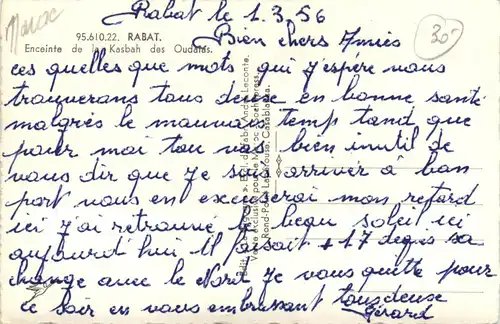 Maroc
Rabat le 1.3.56
30
95.610.22. RABAT.
Enceinte de la Kasbah des Oudaïas.
Bien chers Amies
ces quelles que mots qui j'espère vous
trouverans tous deuse en bonne santé
malgrés le mauvais temp tand que
pour moi tou vas bien inutil de
vous dir que je suis arriver à bon
port vous en excuserai mon retard
ici j'ai retrouvé le beau soleil ici
aujourd'hui il faisait +17 degrés sa
change avec le Nord Je vous quitte pour
ce soir en vous embrassant tous deuse
Gérard